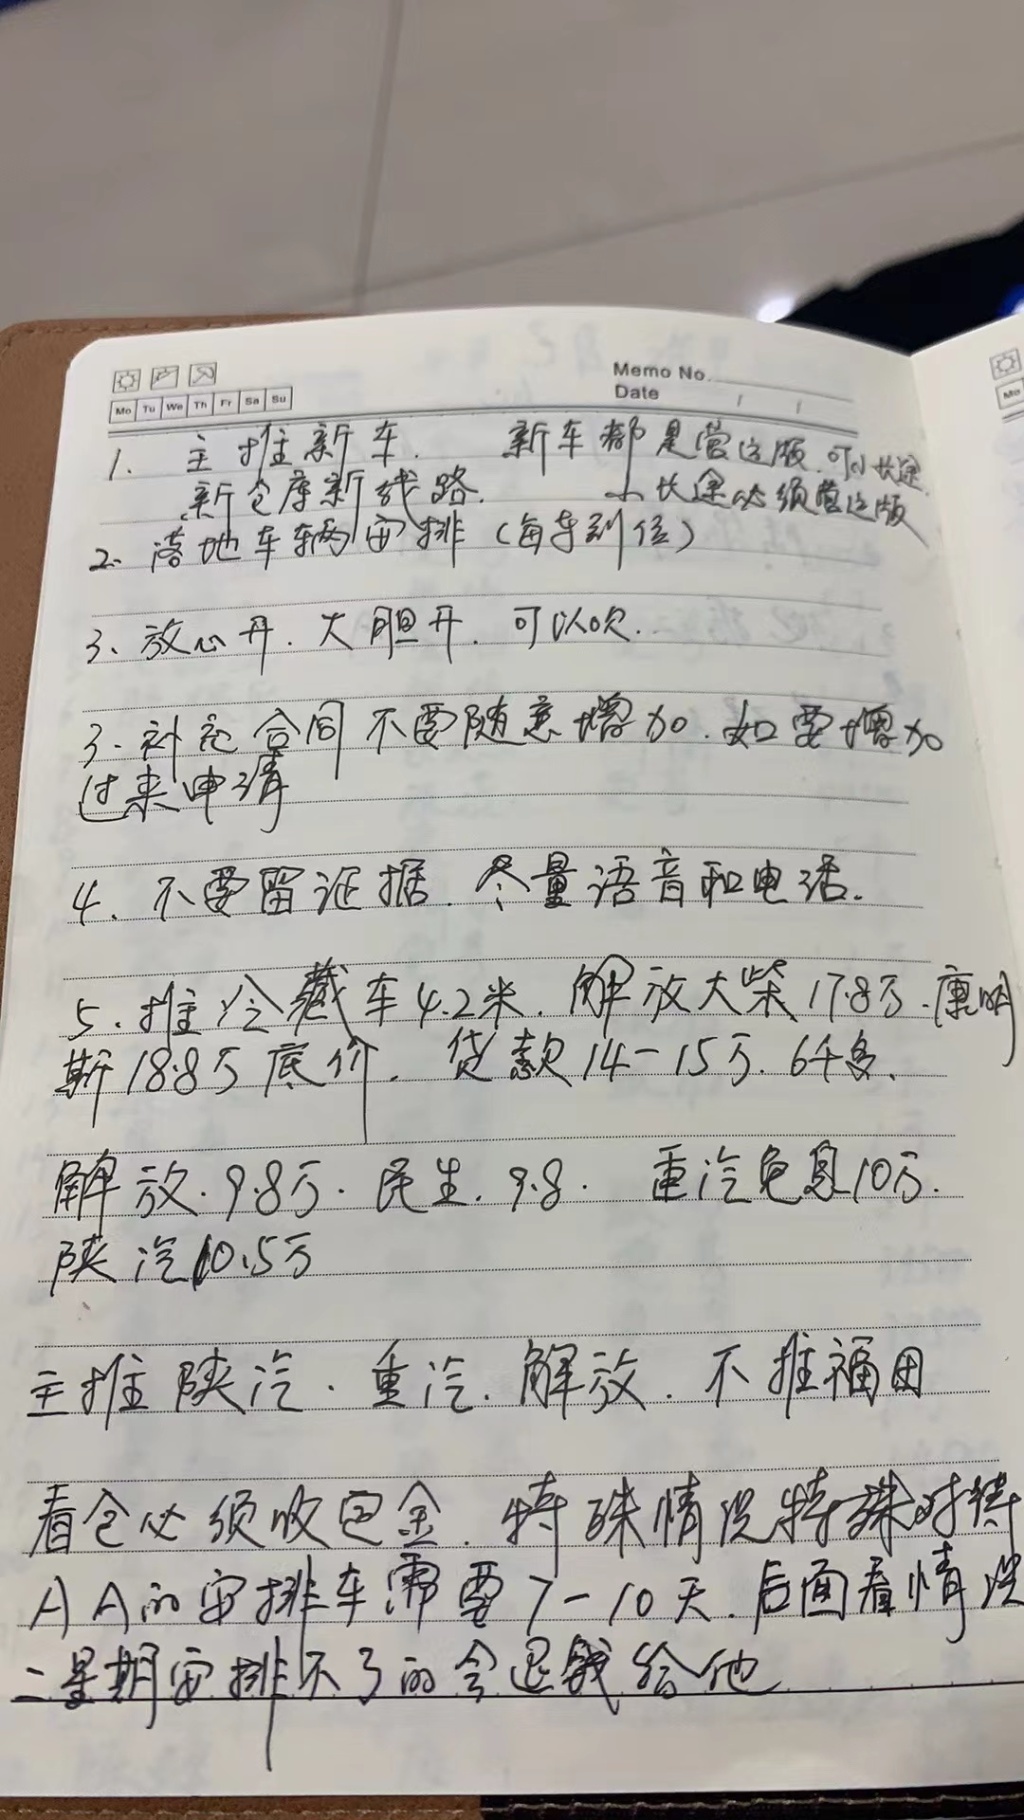 Memo No.
Date / /
Mo Tu We Th Fr Sa Su
Mo
1. 主推新车. 新车都是营运版.可小长途.
新仓库新线路. 小长途必须营运版
2. 落地车辆安排(每车到位)
3、放心开.大胆开.可以吹.
3.补充合同不要随意增加.如要增加
过来申请
4、不要留证据.尽量语音和电话.
5.推冷藏车4.2米.解放大柴17.8万.康明
斯18.8万底价. 贷款14-15万.6千多.
解放.9.8万.民生.9.8. 重汽免息10万.
陕汽10.5万
主推陕汽.重汽.解放.不推福田
看仓必须收定金.特殊情况特殊对待
AA的安排车需要7-10天.后面看情况
二星期安排不了的会退钱给他